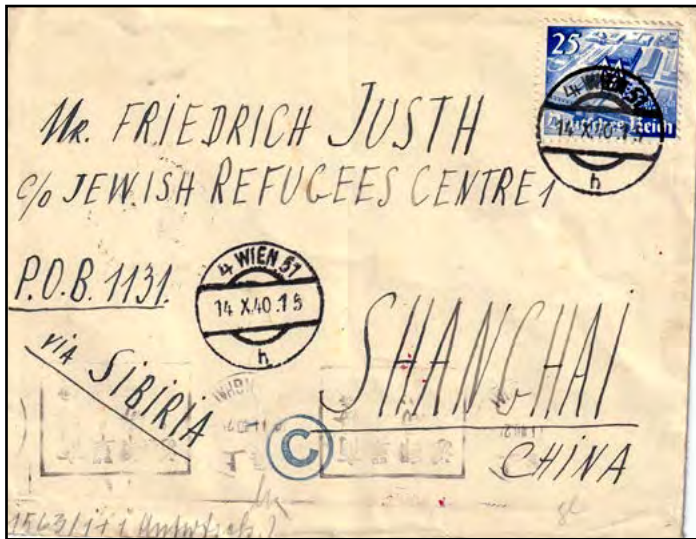 25
4 WIEN 51
14 X.40.15
Deutsches Reich
h
Mr. FRIEDRICH JUSTH
c/o JEWISH REFUGEES CENTRE 1
P.O.B. 1131.
4 WIEN 51
14 X.40.15
h
via SIBIRIA
SHANGHAI
CHINA
C